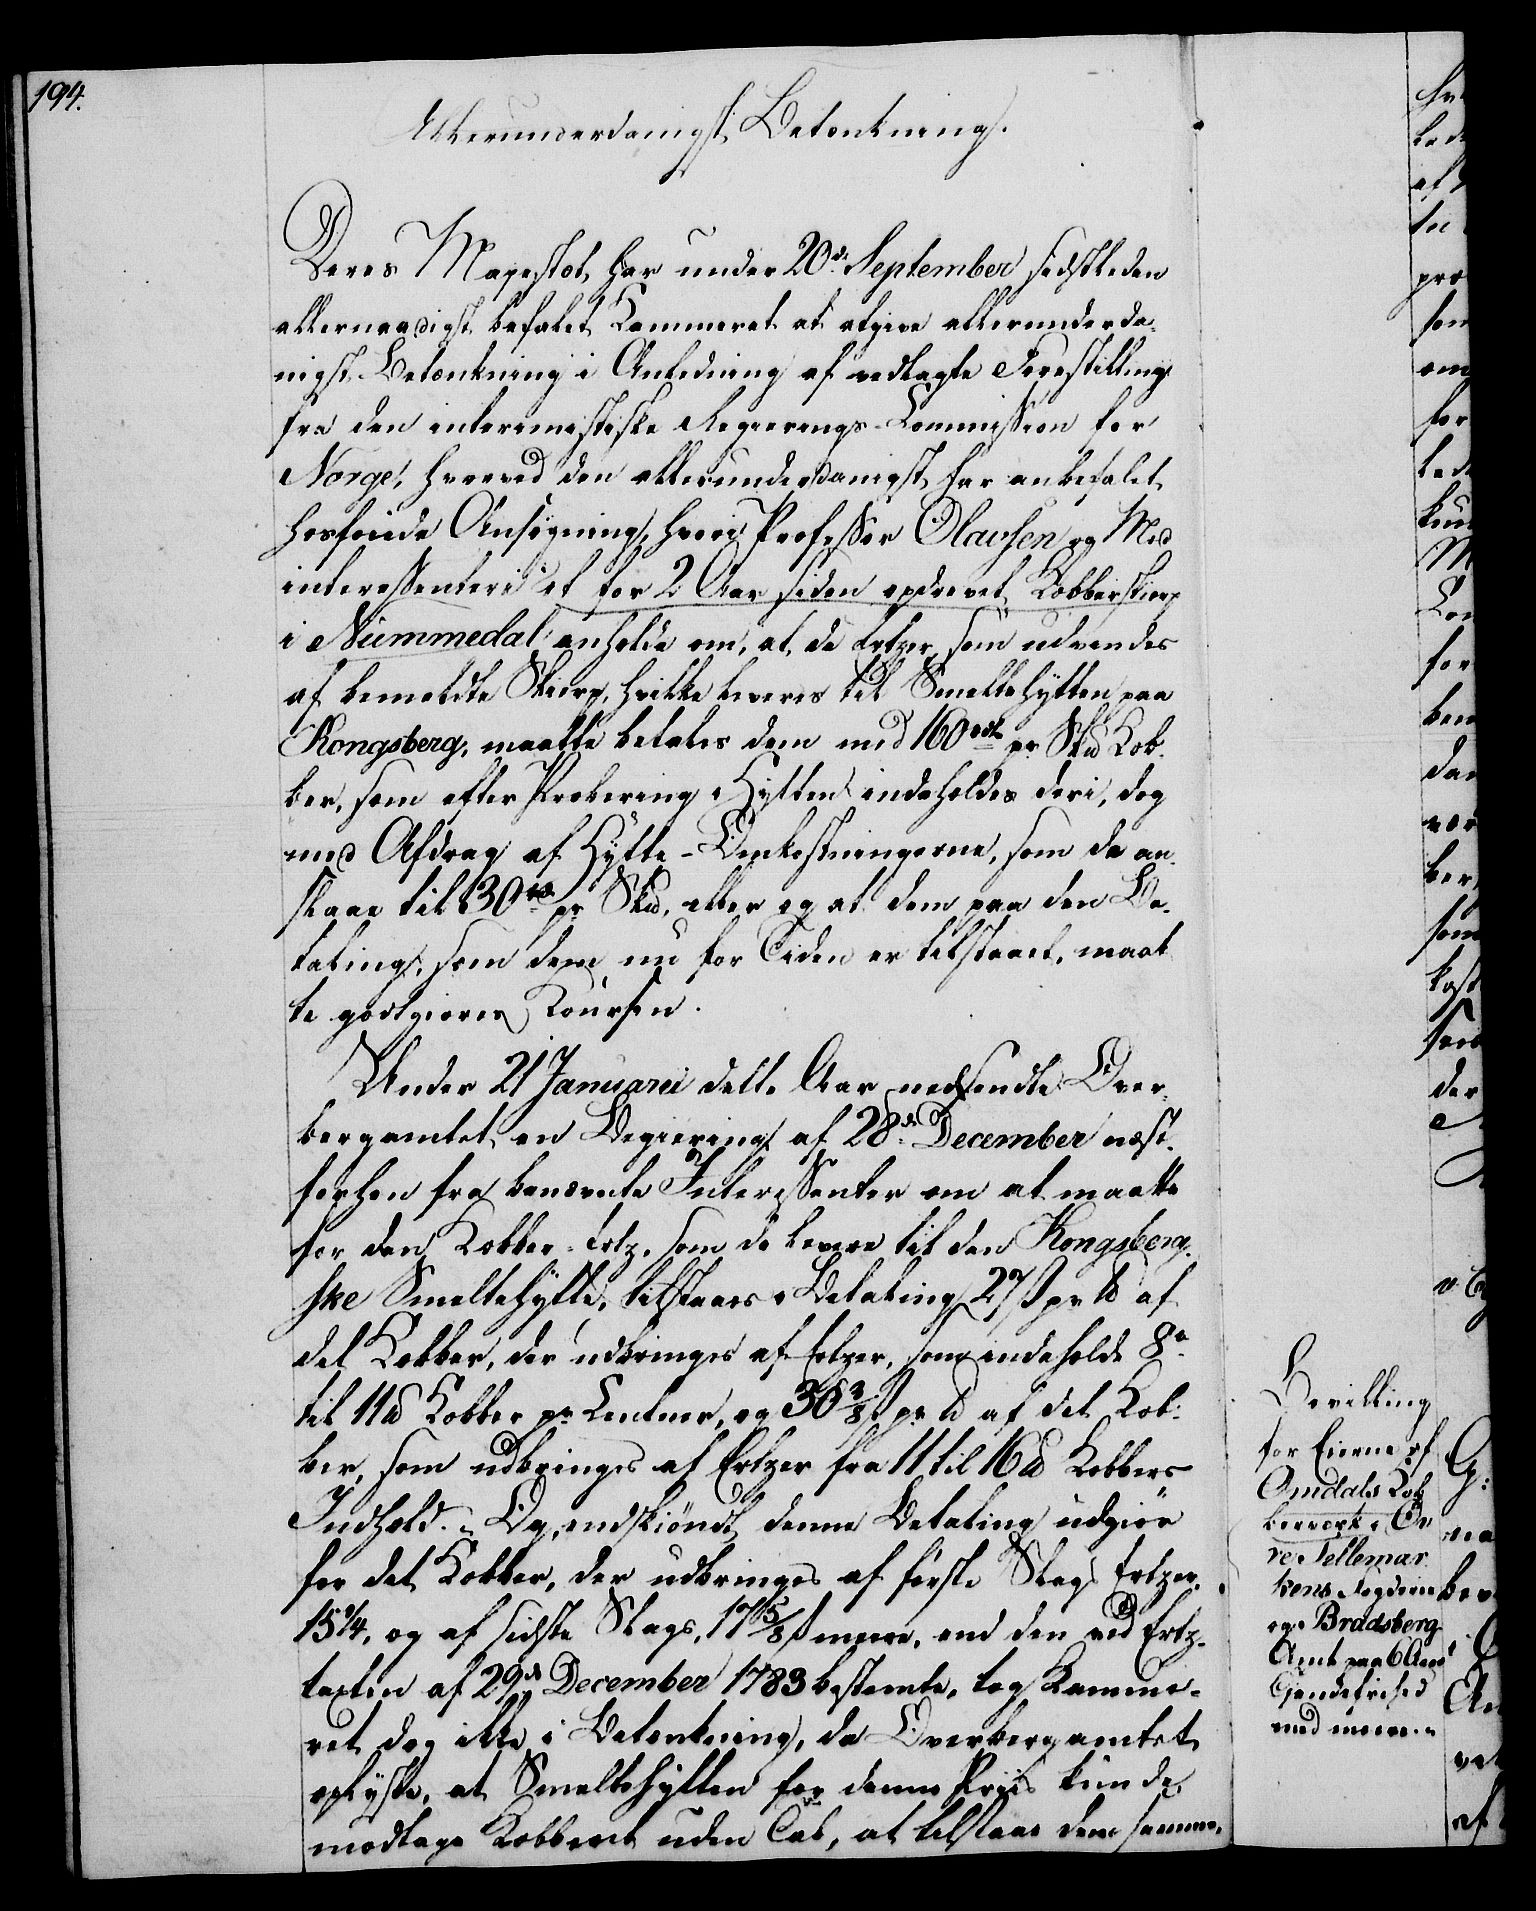 194.
Allerunderdanigst Betænkning.
Deres Majestæt har under 20de September sidstleden
allernaadigst befalet Kammeret at afgive allerunderda-
nigst Betænkning i Anledning af vedlagte Forestilling
fra den interimistiske Regierings-Commission for
Norge, hvorved den allerunderdanigst har anbefalet
hosføiede Ansøgning, hvori Professor Olavsen og Med
interessentere i et for 2 Aar siden opdrevet Kobberskierp
i Nummedal anholde om, at de Ertzer, som udvindes
af bemeldte Skierp, hvilke leveres til Smeltehytten paa
Kongsberg, maatte betales dem med 160 rdl pr Skd Kob-
ber, som efter Probering i Hytten indeholdes deri, dog
med Afdrag af Hytte-Omkostningerne, som de an-
slaae til 30 rd pr Skd, eller og at dem paa den Be-
taling, som dem nu for Tiden er tilstaaet, maat
te godtgiøres Coursen.
Under 21 Januarii dette Aar nedsendte Over-
bergamtet en Begiering af 28de December næst-
forhen fra benævnte Interessenter om at maatte
for den Kobber-Ertz, som de levere til den Kongsberg-
ske Smeltehytte, tilstaaes i Betaling 27 ß pr ℔ af
det Kobber, der udbringes af Ertzer, som indeholde 8
til 11 ℔ Kobber pr Centner, og 30 3/8 ß pr ℔ af det Kob-
ber, som udbringes af Ertzer fra 11 til 16 ℔ Kobbers
Indhold. Og, endskiøndt denne Betaling udgiør
for det Kobber, der udbringes af første Slags Ertzer,
15 3/4, og af sidste Slags, 17 5/8 ß meere, end den ved Ertz-
taxten af 29de December 1783 bestemte, tog Kamme-
ret dog ikke i Betænkning, da Overbergamtet
oplyste, at Smeltehytten for denne Priis kunde
modtage Kobberet uden Tab, at tilstaae dem samme.
Bevilling
for Eierne af
Omdals Kob
berværk i Øv
re Tellemar
kens Fogderie
og Bradsberg
Amt paa 6 Aars
Tiendefrihed
med meere.